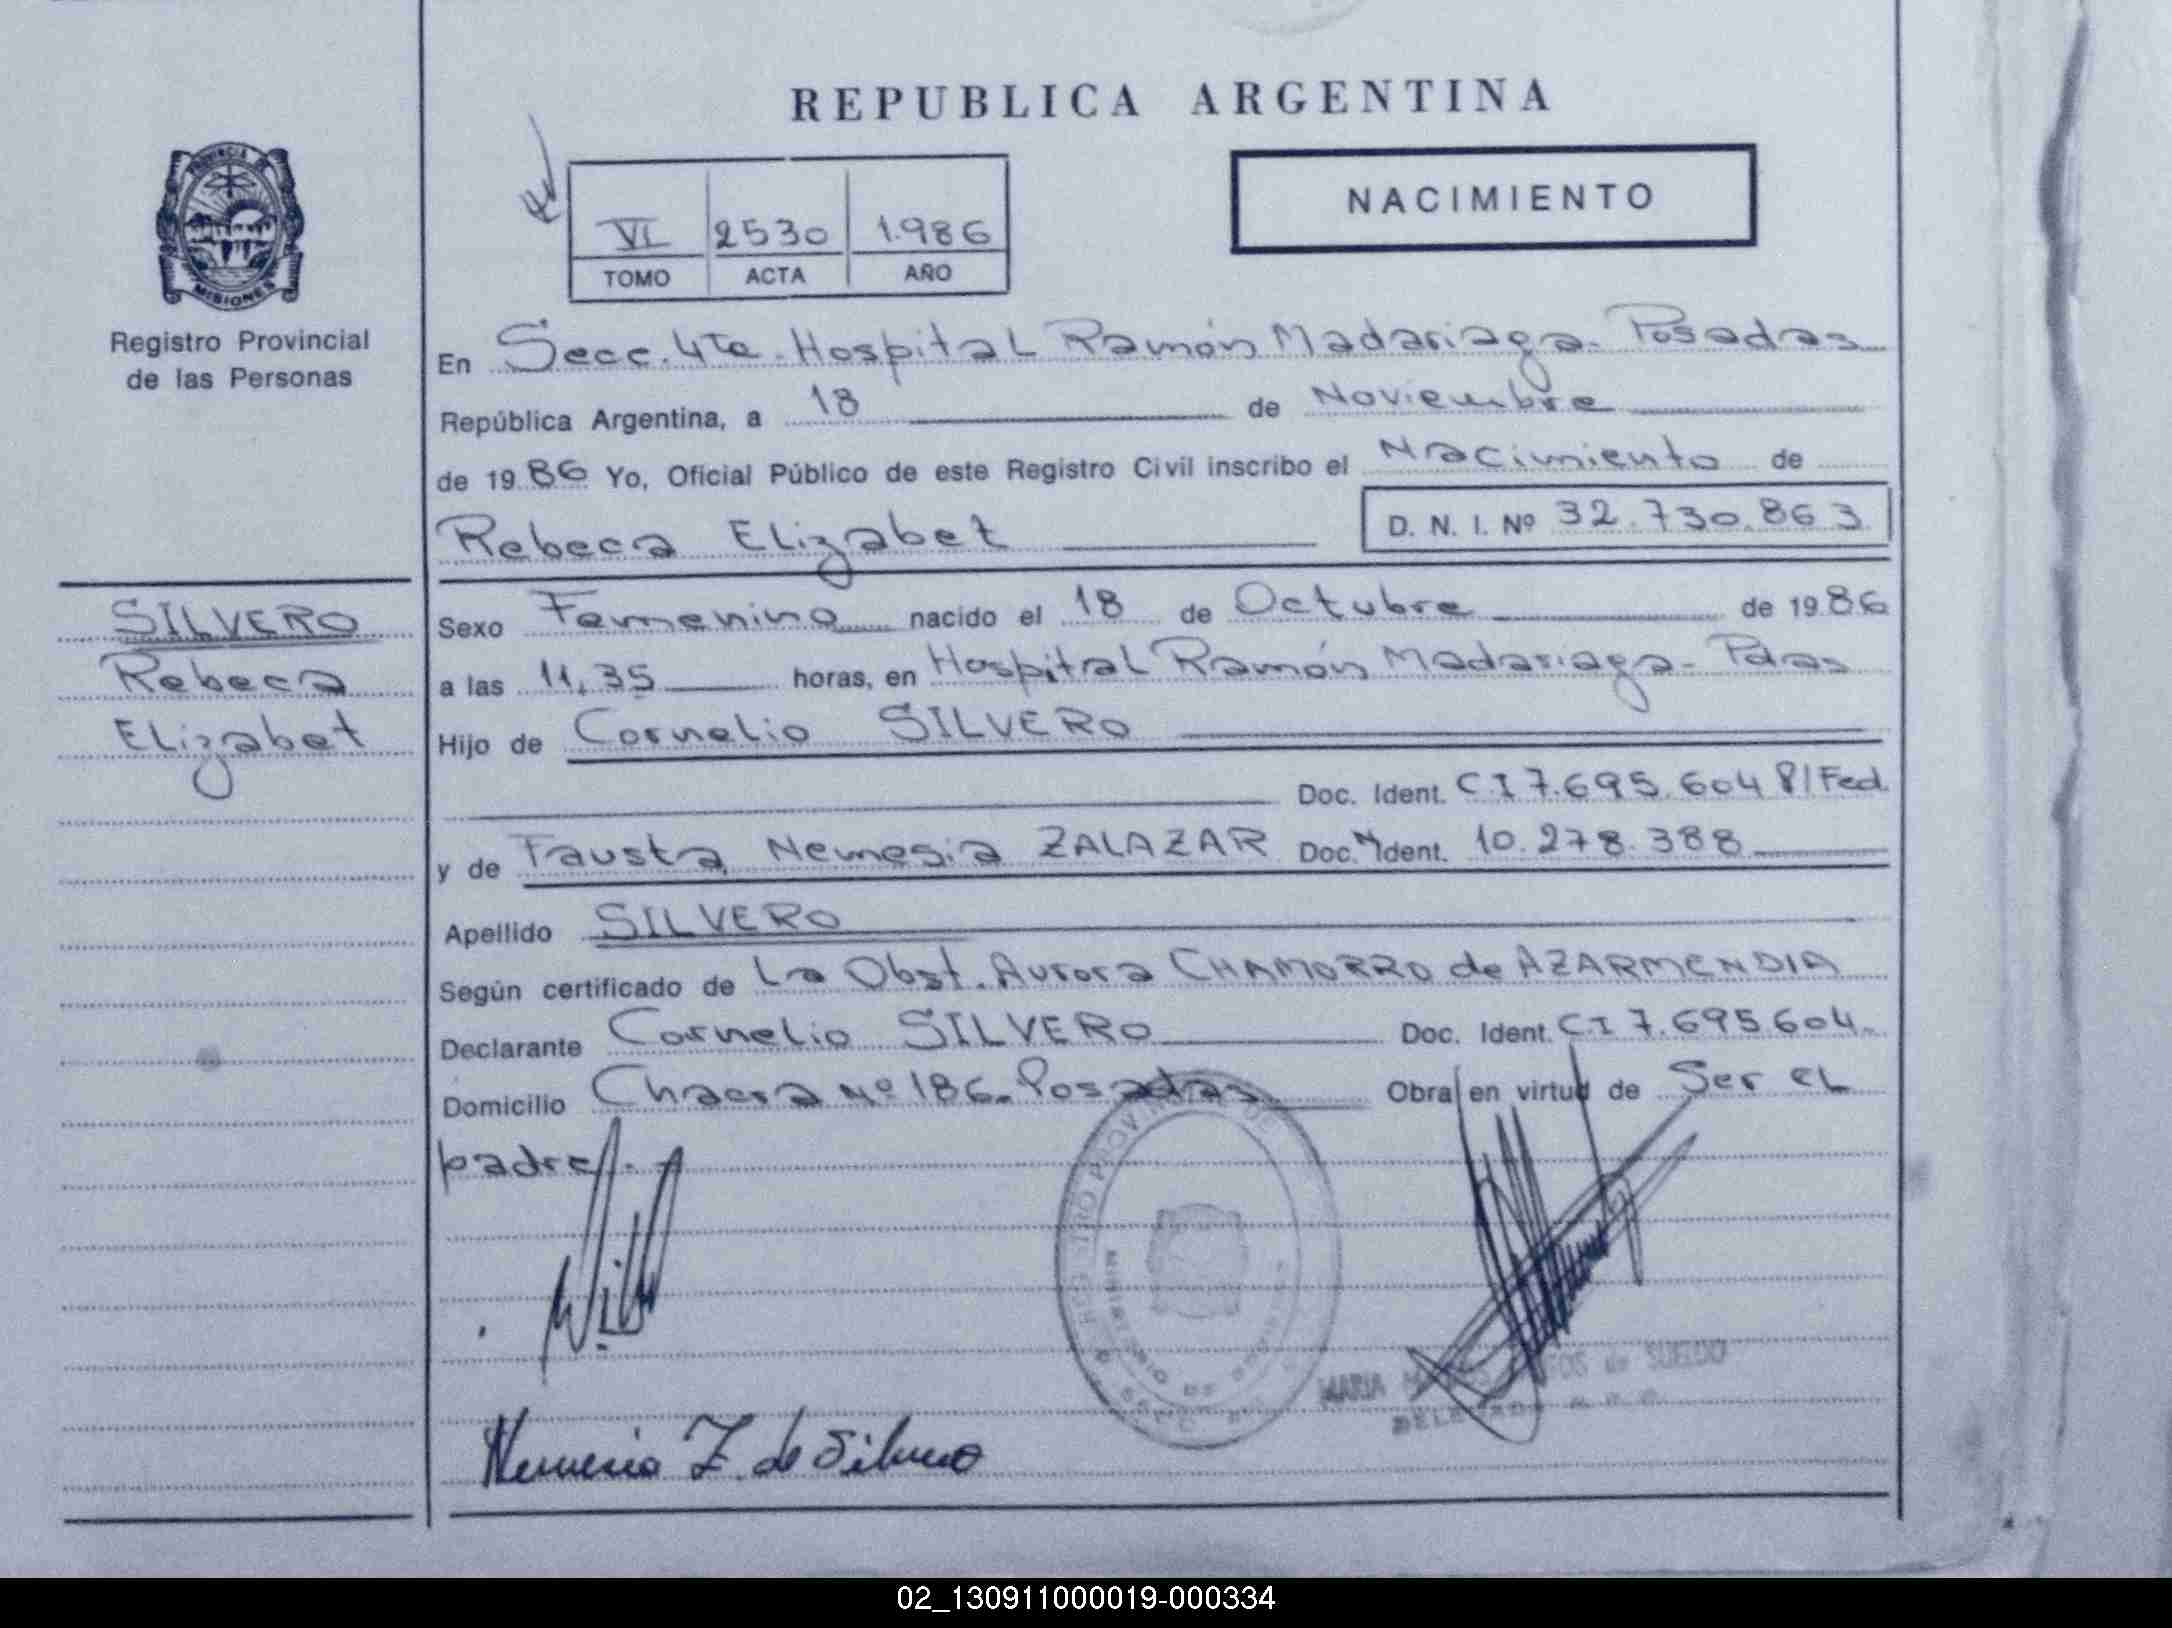 REPUBLICA ARGENTINA
NACIMIENTO
VI 2530 1.986
TOMO ACTA AÑO
PROVINCIA DE
MISIONES
Registro Provincial
de las Personas
En Secc. 4ta. Hospital Ramón Madariaga. Posadas
República Argentina, a 18 de Noviembre
de 1986 Yo, Oficial Público de este Registro Civil inscribo el Nacimiento de
Rebeca Elizabet D. N. I. Nº 32.730.863
SILVERO
Rebeca
Elizabet
Sexo Femenino nacido el 18 de Octubre de 1986
a las 11,35 horas, en Hospital Ramón Madariaga - Pdas
Hijo de Cornelio SILVERO
Doc. Ident. C I 7.695.604 P/Fed.
y de Fausta Nemesia ZALAZAR Doc. Ident. 10.278.388
Apellido SILVERO
Según certificado de La Obst. Aurora CHAMORRO de AZARMENDIA
Declarante Cornelio SILVERO Doc. Ident. C.I 7.695.604.
Domicilio Chacra Nº 186. Posadas Obra en virtud de Ser el
padre.
REGISTRO PROVINCIAL DE
MINISTERIO DE
MARIA de SUELDO
Nemesia Z. de Silvero
02_130911000019-000334